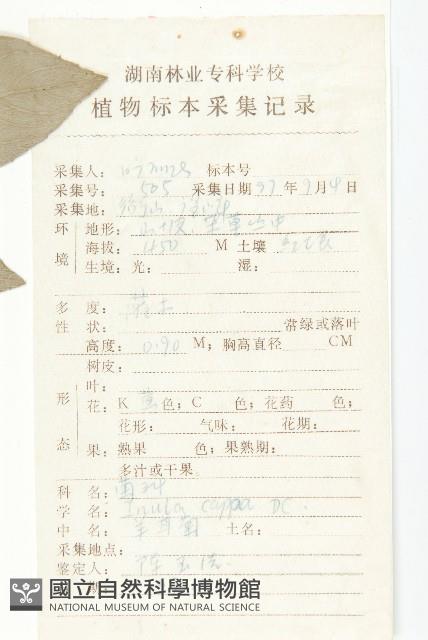 湖南林业专科学校
植物标本采集记录
采集人: 标本号
采集号: 505 采集日期 97 年 9 月 4 日
采集地:
环境
地形: 山坡
海拔: 1450 M 土壤
生境: 光: 湿:
多度:
性状: 灌木 常绿或落叶
高度: 0.90 M; 胸高直径 CM
树皮:
形态
叶:
花: K 黄 色; C 色; 花药 色;
花形: 气味: 花期:
果: 熟果 色; 果熟期:
多汁或干果。
科名: 菊科
学名: Inula cappa DC.
中名: 羊耳菊 土名:
采集地点:
鉴定人:
國立自然科學博物館
NATIONAL MUSEUM OF NATURAL SCIENCE